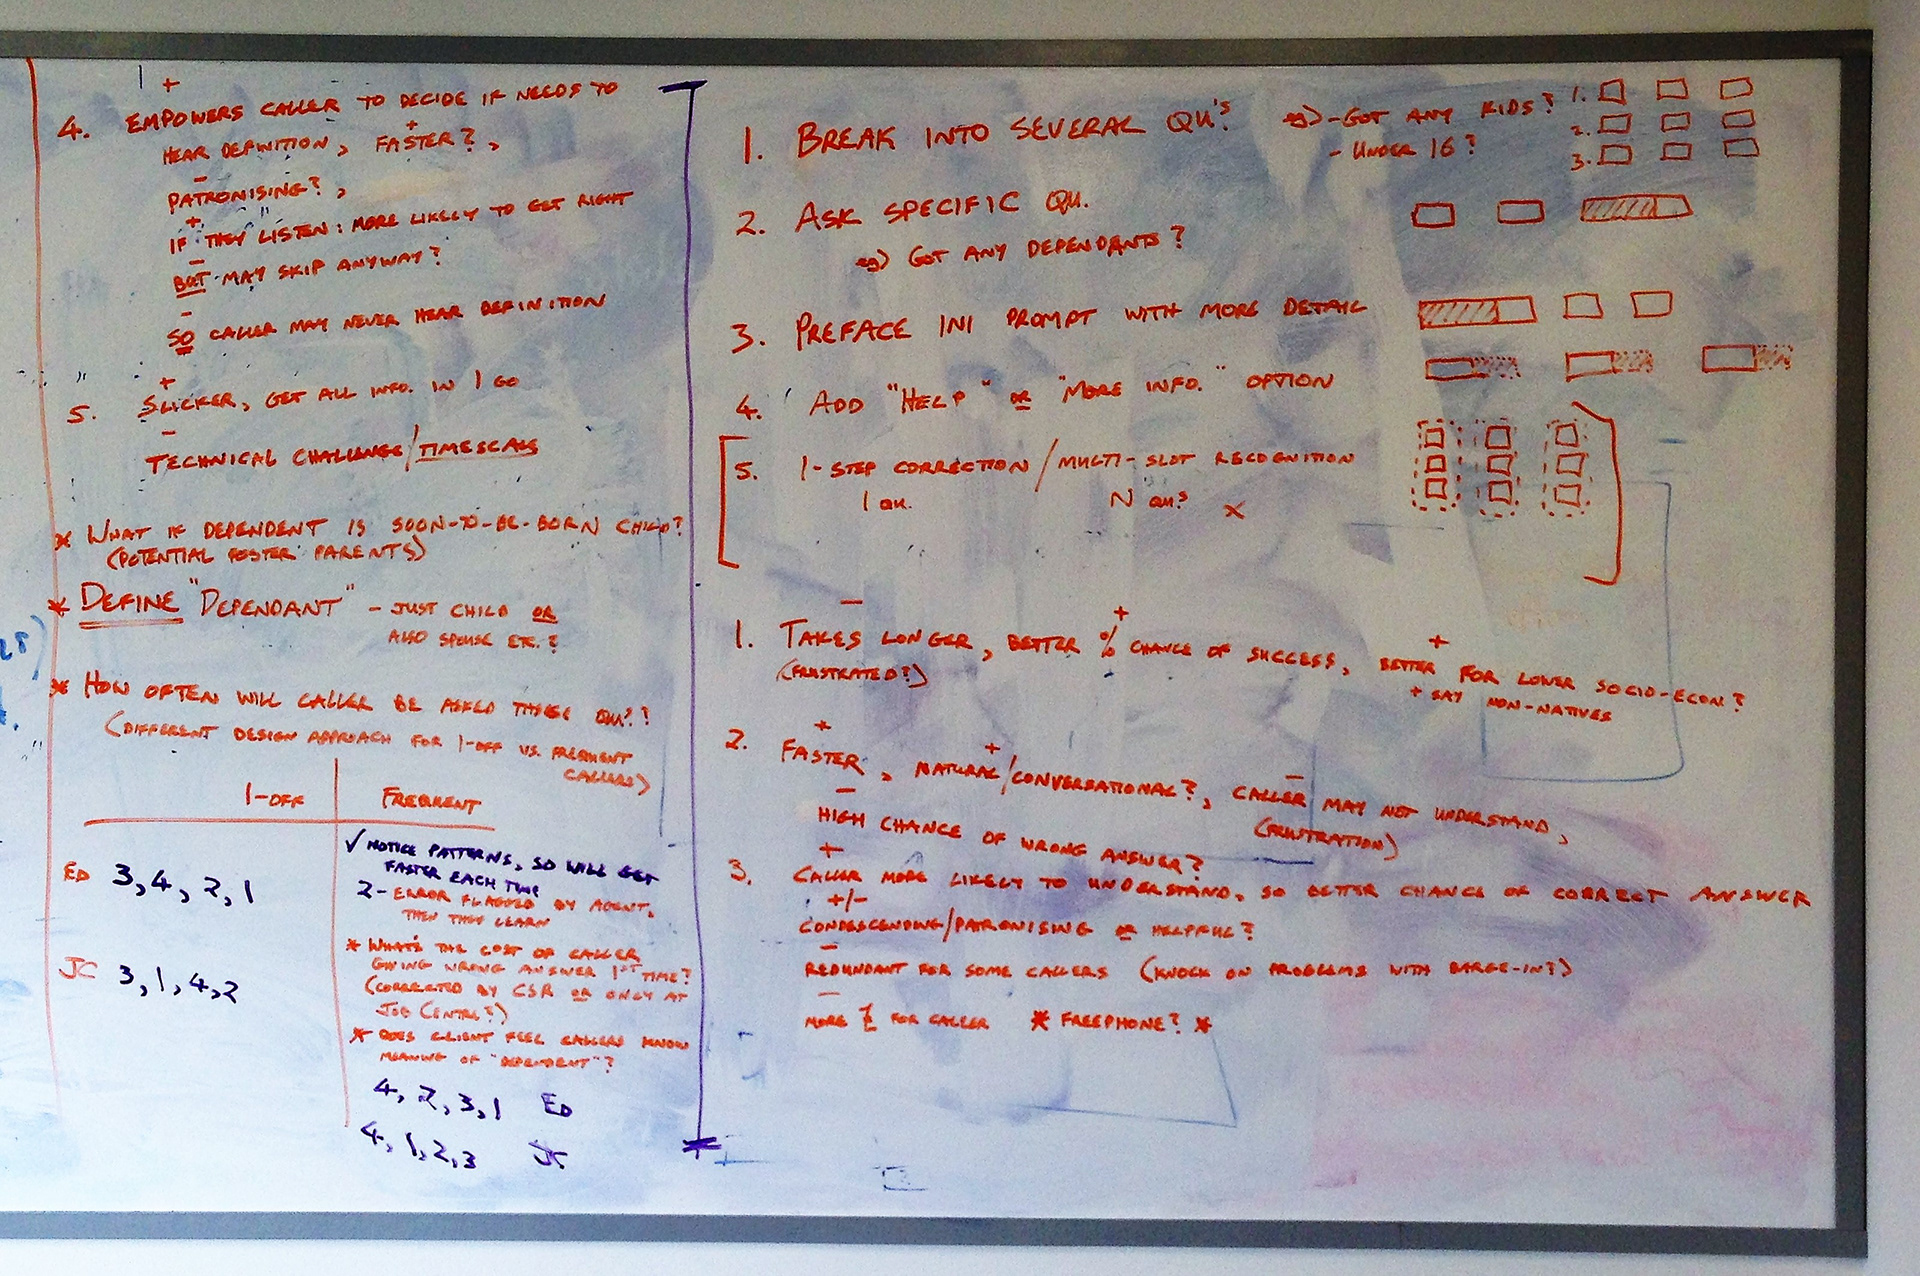 +
4. EMPOWERS CALLER TO DECIDE IF NEEDS TO
+
HEAR DEFINITION, FASTER?,
-
PATRONISING?,
+
IF "THEY" LISTEN: MORE LIKELY TO GET RIGHT
-
BUT MAY SKIP ANYWAY?
-
SO CALLER MAY NEVER HEAR DEFINITION
+
5. SLICKER, GET ALL INFO. IN 1 GO
-
TECHNICAL CHALLENGE/TIMESCALE
* WHAT IF DEPENDENT IS SOON-TO-BE-BORN CHILD?
(POTENTIAL FOSTER PARENTS)
* DEFINE "DEPENDANT" - JUST CHILD OR
ALSO SPOUSE ETC.?
* HOW OFTEN WILL CALLER BE ASKED THESE QU'S?
(DIFFERENT DESIGN APPROACH FOR 1-OFF VS. FREQUENT
CALLERS)
1-OFF FREQUENT
ED 3,4,2,1
JC 3,1,4,2
✓ NOTICE PATTERNS, SO WILL GET
FASTER EACH TIME
2 - ERROR FLAGGED BY AGENT,
THEN THEY LEARN
* WHAT'S THE COST OF CALLER
GIVING WRONG ANSWER 1ST TIME?
(CORRECTED BY CSR OR ONLY AT
JOB CENTRE?)
* DOES CLIENT FEEL CALLERS KNOW
MEANING OF "DEPENDENT"?
4, 2, 3, 1 ED
4, 1, 2, 3 JC
1. BREAK INTO SEVERAL QU'S eg) - GOT ANY KIDS?
- UNDER 16?
1.
2.
3.
2. ASK SPECIFIC QU.
eg) GOT ANY DEPENDANTS?
3. PREFACE INI PROMPT WITH MORE DETAIL
4. ADD "HELP" OR "MORE INFO." OPTION
5. 1-STEP CORRECTION / MULTI-SLOT RECOGNITION
1 QU. N QU'S X
- + +
1. TAKES LONGER, BETTER % CHANCE OF SUCCESS, BETTER FOR LOWER SOCIO-ECON?
(FRUSTRATED?) + SAY NON-NATIVES
+ + -
2. FASTER, NATURAL/CONVERSATIONAL?, CALLER MAY NOT UNDERSTAND,
(FRUSTRATION)
-
HIGH CHANCE OF WRONG ANSWER?
+
3. CALLER MORE LIKELY TO UNDERSTAND, SO BETTER CHANCE OF CORRECT ANSWER
+/-
CONDESCENDING/PATRONISING OR HELPFUL?
-
REDUNDANT FOR SOME CALLERS (KNOCK ON PROBLEMS WITH BARGE-IN?)
-
MORE £ FOR CALLER * FREEPHONE? *